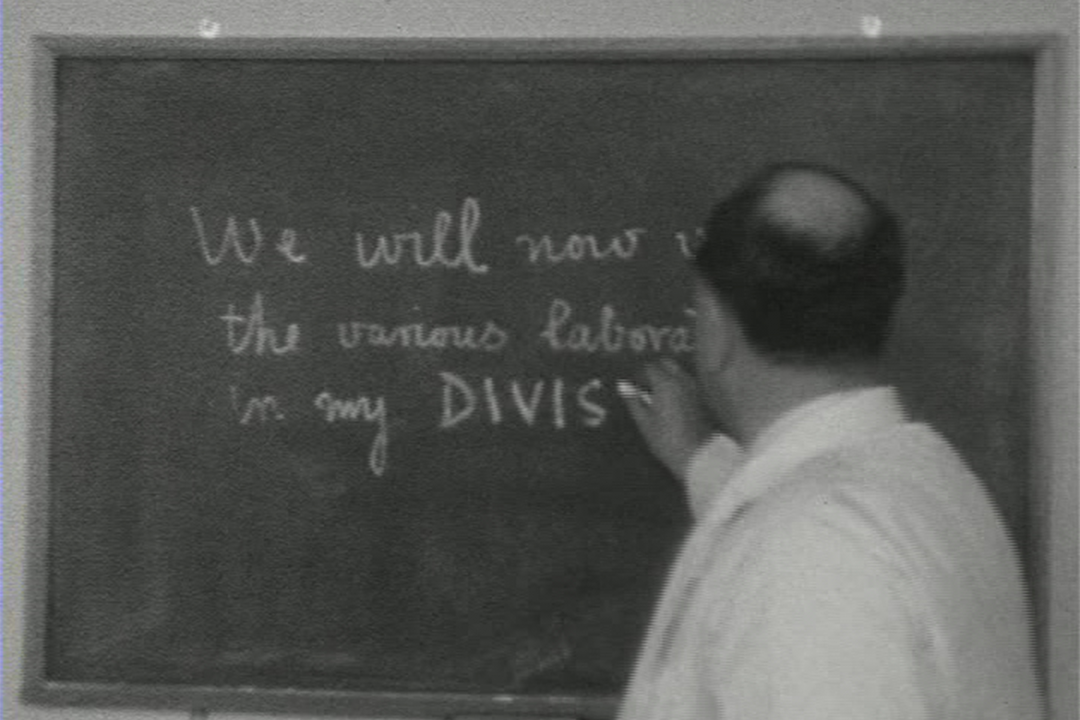 We will now v
the various labora
in my DIVIS